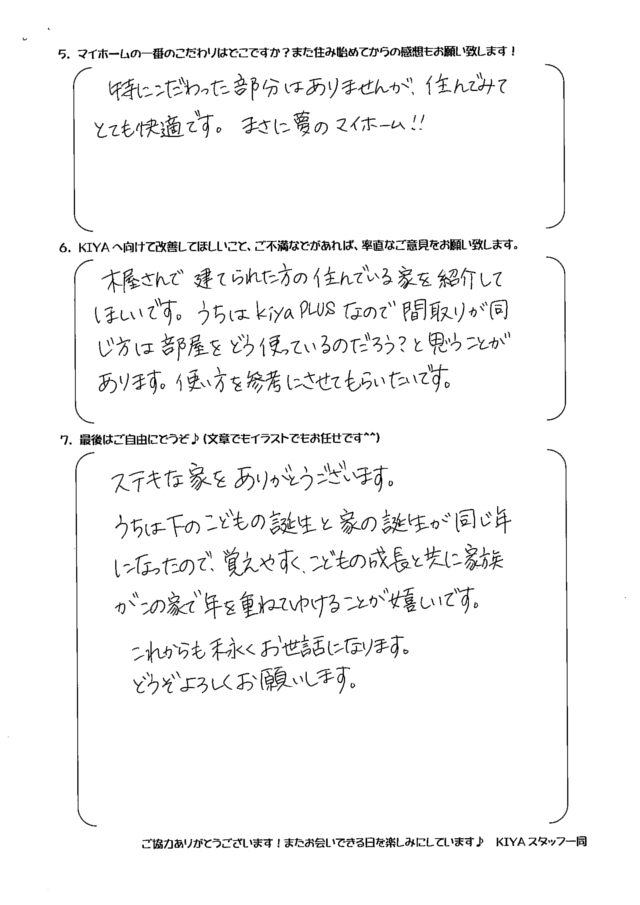 5. マイホームの一番のこだわりはどこですか？また住み始めてからの感想もお願い致します！
特にこだわった部分はありませんが、住んでみて
とても快適です。まさに夢のマイホーム!!
6. KIYAへ向けて改善してほしいこと、ご不満などがあれば、率直なご意見をお願い致します。
木屋さんで建てられた方の住んでいる家を紹介して
ほしいです。うちはkiyaPLUSなので間取りが同
じ方は部屋をどう使っているのだろう?と思うことが
あります。使い方を参考にさせてもらいたいです。
7. 最後はご自由にどうぞ♪(文章でもイラストでもお任せです^^)
ステキな家をありがとうございます。
うちは下のこどもの誕生と家の誕生が同じ年
になったので、覚えやすく、こどもの成長と共に家族
がこの家で年を重ねてゆけることが嬉しいです。
これからも末永くお世話になります。
どうぞよろしくお願いします。
ご協力ありがとうございます！またお会いできる日を楽しみにしています♪ KIYAスタッフ一同